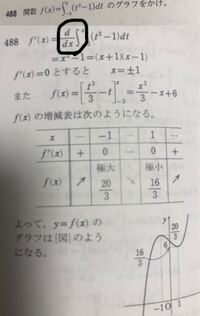 488 関数 f(x)=∫(t²-1)dt のグラフをかけ。
488 f'(x)=d/dx∫(t²-1)dt
=x²-1=(x+1)(x-1)
f'(x)=0 とすると x=±1
また f(x)=[t³/3-t]ˣ₋₃=x³/3-x+6
f(x) の増減表は次のようになる。
x … -1 … 1 …
f'(x) + 0 - 0 +
f(x) ↗ 極大 20/3 ↘ 極小 16/3 ↗
よって,y=f(x) の
グラフは [図] のよう
になる。
y
20/3
16/3
6
-1 0 1